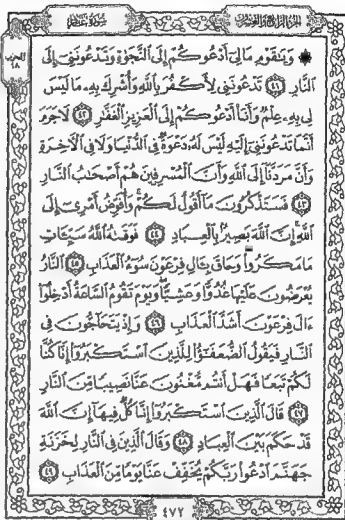 الجزء الرابع والعشرون
سورة غافر
۞ وَيَٰقَوْمِ مَا لِىٓ أَدْعُوكُمْ إِلَى ٱلنَّجَوٰةِ وَتَدْعُونَنِىٓ إِلَى
ٱلنَّارِ ٤١ تَدْعُونَنِى لِأَكْفُرَ بِٱللَّهِ وَأُشْرِكَ بِهِۦ مَا لَيْسَ
لِى بِهِۦ عِلْمٌ وَأَنَا۠ أَدْعُوكُمْ إِلَى ٱلْعَزِيزِ ٱلْغَفَّٰرِ ٤٢ لَا جَرَمَ
أَنَّمَا تَدْعُونَنِىٓ إِلَيْهِ لَيْسَ لَهُۥ دَعْوَةٌ فِى ٱلدُّنْيَا وَلَا فِى ٱلْأَخِرَةِ
وَأَنَّ مَرَدَّنَآ إِلَى ٱللَّهِ وَأَنَّ ٱلْمُسْرِفِينَ هُمْ أَصْحَٰبُ ٱلنَّارِ
٤٣ فَسَتَذْكُرُونَ مَآ أَقُولُ لَكُمْ وَأُفَوِّضُ أَمْرِىٓ إِلَى
ٱللَّهِ إِنَّ ٱللَّهَ بَصِيرٌۢ بِٱلْعِبَادِ ٤٤ فَوَقَىٰهُ ٱللَّهُ سَيِّـَٔاتِ
مَا مَكَرُوا۟ وَحَاقَ بِـَٔالِ فِرْعَوْنَ سُوٓءُ ٱلْعَذَابِ ٤٥ ٱلنَّارُ
يُعْرَضُونَ عَلَيْهَا غُدُوًّا وَعَشِيًّا وَيَوْمَ تَقُومُ ٱلسَّاعَةُ أَدْخِلُوٓا۟
ءَالَ فِرْعَوْنَ أَشَدَّ ٱلْعَذَابِ ٤٦ وَإِذْ يَتَحَآجُّونَ فِى
ٱلنَّارِ فَيَقُولُ ٱلضُّعَفَٰٓؤُا۟ لِلَّذِينَ ٱسْتَكْبَرُوٓا۟ إِنَّا كُنَّا
لَكُمْ تَبَعًا فَهَلْ أَنتُم مُّغْنُونَ عَنَّا نَصِيبًا مِّنَ ٱلنَّارِ
٤٧ قَالَ ٱلَّذِينَ ٱسْتَكْبَرُوٓا۟ إِنَّا كُلٌّ فِيهَآ إِنَّ ٱللَّهَ
قَدْ حَكَمَ بَيْنَ ٱلْعِبَادِ ٤٨ وَقَالَ ٱلَّذِينَ فِى ٱلنَّارِ لِخَزَنَةِ
جَهَنَّمَ ٱدْعُوا۟ رَبَّكُمْ يُخَفِّفْ عَنَّا يَوْمًا مِّنَ ٱلْعَذَابِ ٤٩
٤٧٢